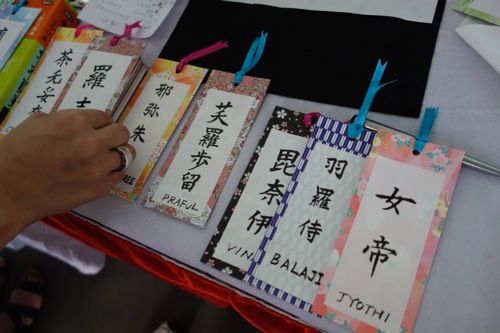 茶毛
羅
邪弥朱
芙羅歩留
PRAFUL
毘奈伊
VIN
羽羅侍
BALAJI
女帝
JYOTHI